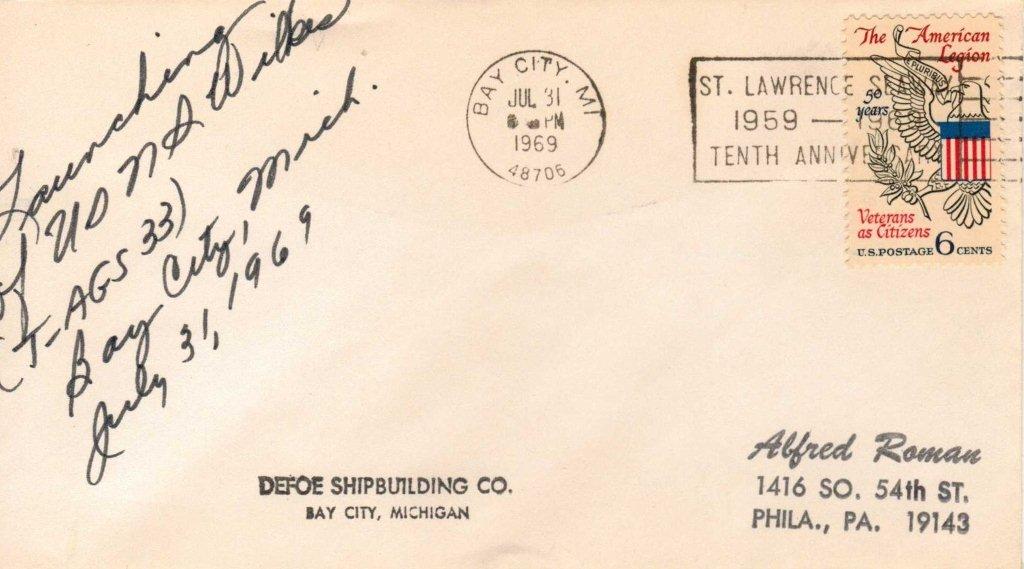 Launching
of USNS Wilkes
(T-AGS 33)
Bay City, Mich.
July 31, 1969
BAY CITY, MI
JUL 31
PM
1969
48706
ST. LAWRENCE
1959 —
TENTH
The American
Legion
PLURIBUS
50
years
Veterans
as Citizens
U.S. POSTAGE 6 CENTS
DEFOE SHIPBUILDING CO.
BAY CITY, MICHIGAN
Alfred Roman
1416 SO. 54th ST.
PHILA., PA. 19143